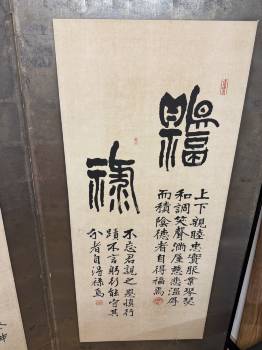 福
上下親睦忠實服業琴瑟
和調笑聲満屋慈悲温厚
而積陰德者自得福焉
禄
不忘君親之恩慎行
蹟不言躬行能守其
分者自得禄焉